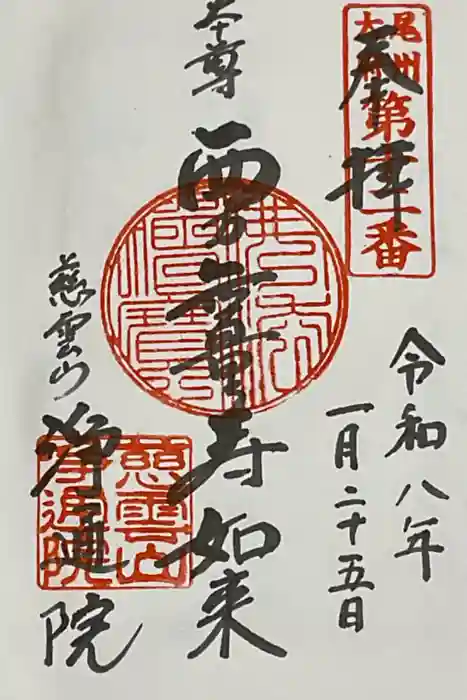 奉拝
尾州
第
番
令和八年
一月二十五日
本尊
無量寿如来
慈雲山
浄通院
慈雲山
浄通院